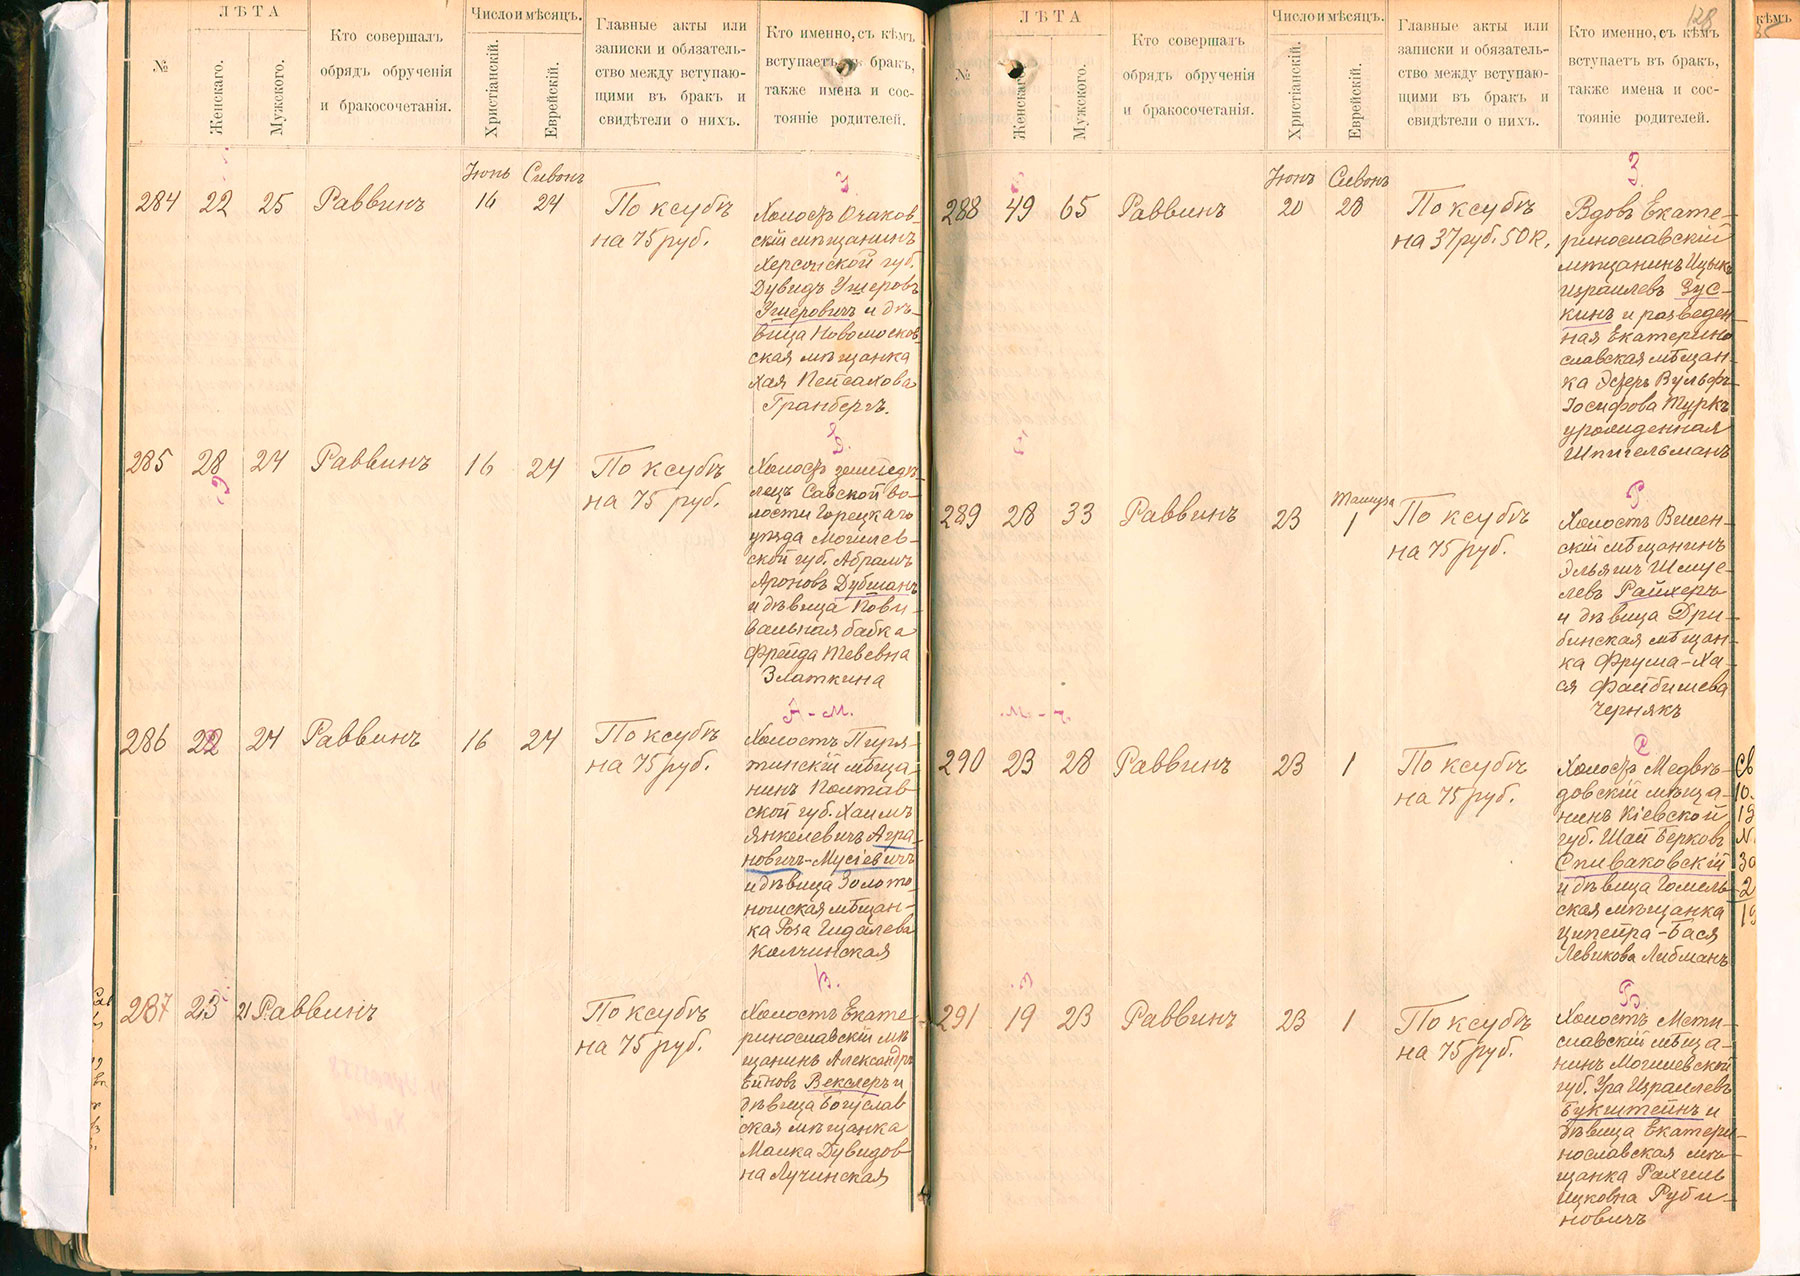 №
ЛѢТА
Женскаго.
Мужскаго.
Кто совершалъ
обрядъ обрученія
и бракосочетанія.
Число и мѣсяцъ.
Христіанскій.
Еврейскій.
Главные акты или
записки и обязатель-
ство между вступаю-
щими въ бракъ и
свидѣтели о нихъ.
Кто именно, съ кѣмъ
вступаетъ въ бракъ,
также имена и сос-
тояніе родителей.
Іюнь Сивонъ
284 22 25 Раввинъ 16 24 По ксубѣ
на 75 руб.
Холостъ Очаков-
скій мѣщанинъ
Херсонской губ.
Дувидъ Ушеровъ
Ушеровичъ и дѣ-
вица Новомосков-
ская мѣщанка
Хая Пейсахова
Гранбергъ.
285 28 24 Раввинъ 16 24 По ксубѣ
на 75 руб.
Холостъ земледѣ-
лецъ Савской во-
лости Горецкаго
уѣзда Могилев-
ской губ. Абрамъ
Ароновъ Дубманъ
и дѣвица Пови-
вальная бабка
Фрейда Тевевна
Златкина
А-М.
286 22 24 Раввинъ 16 24 По ксубѣ
на 75 руб.
Холостъ Пиря-
тинскій мѣща-
нинъ Полтав
ской губ. Хаимъ
Янкелевичъ Агра-
новичъ-Мусіевичъ
и дѣвица Золото-
ношская мѣщан-
ка Роза Гидалева
Колчинская
В.
287 23 21 Раввинъ По ксубѣ
на 75 руб.
Холостъ Екате-
ринославскій мѣ
щанинъ Александръ
Ейновъ Векслеръ и
дѣвица Богуслав
ская мѣщанка
Малка Дувидов
на Лучинская
128
№
ЛѢТА
Женскаго.
Мужскаго.
Кто совершалъ
обрядъ обрученія
и бракосочетанія.
Число и мѣсяцъ.
Христіанскій.
Еврейскій.
Главные акты или
записки и обязатель-
ство между вступаю-
щими въ бракъ и
свидѣтели о нихъ.
Кто именно, съ кѣмъ
вступаетъ въ бракъ,
также имена и сос-
тояніе родителей.
кѣмъ
З
Іюнь Сивонъ
288 49 65 Раввинъ 20 28 По ксубѣ
на 37 руб. 50 к.
Вдовъ Екате-
ринославскій
мѣщанинъ Ицыкъ
Израилевъ Зус-
кинъ и разведен
ная Екатерино
славская мѣщан-
ка Эстеръ Вульфъ-
Іосифова Туркъ
урожденная
Шпигельманъ
Р
Тамуза
289 28 33 Раввинъ 23 1 По ксубѣ
на 75 руб.
Холостъ Вилен-
скій мѣщанинъ
Эльяшъ Шмуе-
левъ Райхеръ
и дѣвица Дри-
бинская мѣщан-
ка Фрума-Ха-
ся Файбишева
Чернякъ
С
290 23 28 Раввинъ 23 1 По ксубѣ
на 75 руб.
Холостъ Медвѣ-
довскій мѣща-
нинъ Кіевской
губ. Шая Берковъ
Спиваковскій
и дѣвица Гомель
ская мѣщанка
Ципейра-Бася
Левикова Либманъ
Св
10.
19
N.
30
2
19
Б.
291 19 23 Раввинъ 23 1 По ксубѣ
на 75 руб.
Холостъ Мсти-
славскій мѣща-
нинъ Могилевской
губ. Ура Израилевъ
Букштейнъ и
дѣвица Екатери-
нославская мѣ-
щанка Рахиль
Ицковна Руби-
новичъ